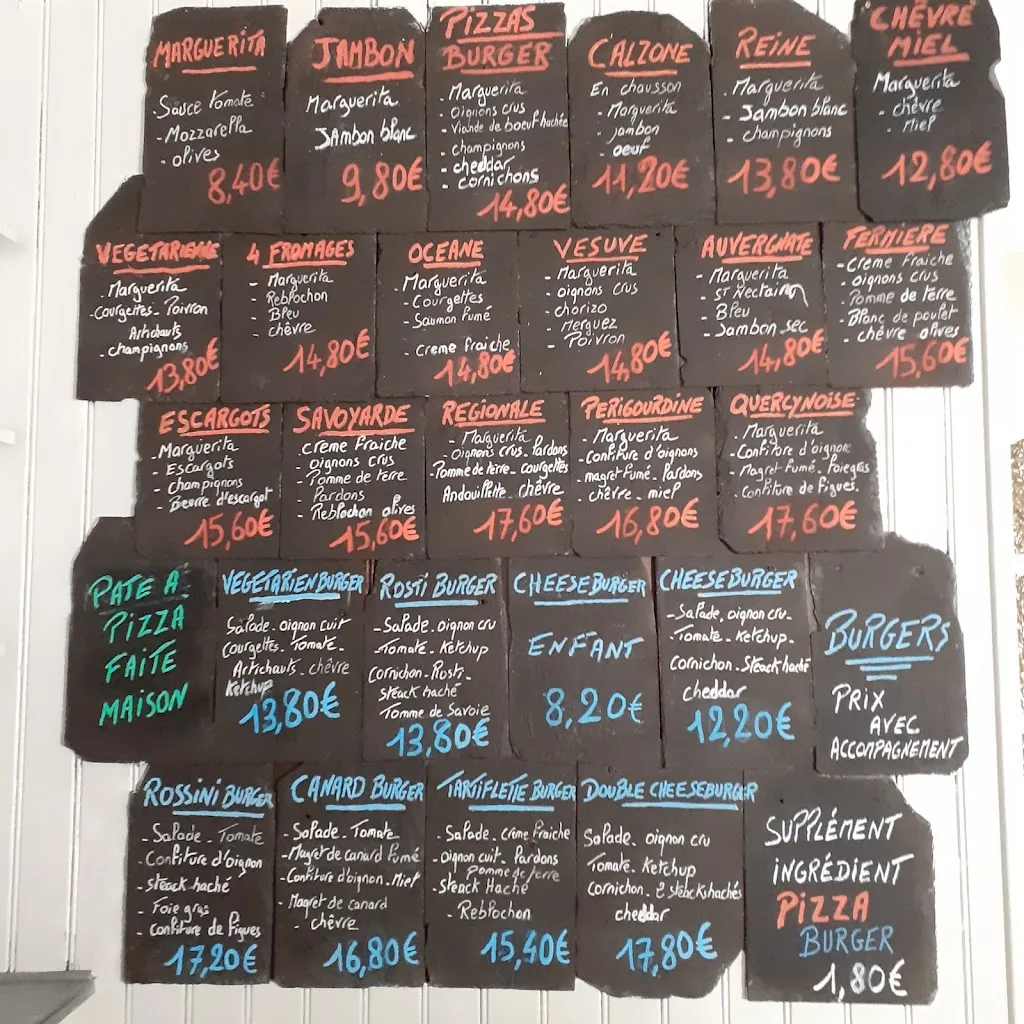 MARGUERITA
Sauce tomate
- Mozzarella
- olives
8,40€
JAMBON
Marguerita
JAmbon blanc
9,80€
PIZZAS
BURGER
- Marguerita
- Oignons crus
- Viande de boeuf hachée
- champignons
- cheddar
- cornichons
14,80€
CALZONE
En chausson
- Marguerita
- jambon
- oeuf
11,20€
REINE
- Marguerita
- Jambon blanc
- champignons
13,80€
CHÊVRE
MIEL
Marguerita
- chêvre
- Miel
12,80€
VEGETARIENNE
- Marguerita
- Courgettes - Poivron
Artichauts
- champignons
13,80€
4 FROMAGES
- Marguerita
- Reblochon
- Bleu
- chêvre
14,80€
OCEANE
Marguerita
- Courgettes
- Saumon fumé
- Creme fraiche
14,80€
VESUVE
- Marguerita
- oignons crus
- chorizo
- Merguez
- Poivron
14,80€
AUVERGNATE
- Marguerita
- ST Nectaire
- Bleu
- Jambon sec
14,80€
FERMIERE
- Creme fraiche
- oignons crus
- Pomme de terre
- Blanc de poulet
- chêvre olives
15,60€
ESCARGOTS
- Marguerita
- Escargots
- champignons
- Beurre d'escargot
15,60€
SAVOYARDE
crême fraiche
- oignons crus
- Pomme de terre
- Lardons
- Reblochon olives
15,60€
REGIONALE
- Marguerita
- Oignons crus - Lardons
- Pomme de terre - courgettes
Andouillette - chêvre
17,60€
PERIGOURDINE
- Marguerita
- Confiture d'oignons
- magret fumé - Lardons
- chêvre - miel
16,80€
QUERCYNOISE
- Marguerita
- Confiture d'oignons
- Magret fumé - foie gras
- Confiture de figues.
17,60€
PATE A
PIZZA
FAITE
MAISON
VEGETARIEN BURGER
Salade - oignon cuit
Courgettes - Tomate -
Artichauts - chêvre
Ketchup
13,80€
ROSTI BURGER
- Salade - oignon cru
- Tomate - Ketchup
Cornichon - Rosti -
steack haché
Tomme de Savoie
13,80€
CHEESE BURGER
ENFANT
8,20€
CHEESE BURGER
- Salade - oignon cru -
- Tomate - Ketchup -
Cornichon - Steack haché
cheddar
12,20€
BURGERS
PRIX
AVEC
ACCOMPAGNEMENT
ROSSINI BURGER
- Salade - Tomate
- Confiture d'oignon
- steack haché
- Foie gras
- Confiture de figues
17,20€
CANARD BURGER
- Salade - Tomate
- Magret de canard fumé
- Confiture d'oignon - Miel
- Magret de canard
- chêvre
16,80€
TARTIFLETTE BURGER
- Salade - crême fraiche
- oignon cuit - Lardons
- Pomme de terre
- steack Haché
- Reblochon
15,40€
DOUBLE CHEESEBURGER
Salade - oignon cru
Tomate - Ketchup
Cornichon - 2 steacks hachés
cheddar
17,80€
SUPPLÉMENT
INGRÉDIENT
PIZZA
BURGER
1,80€